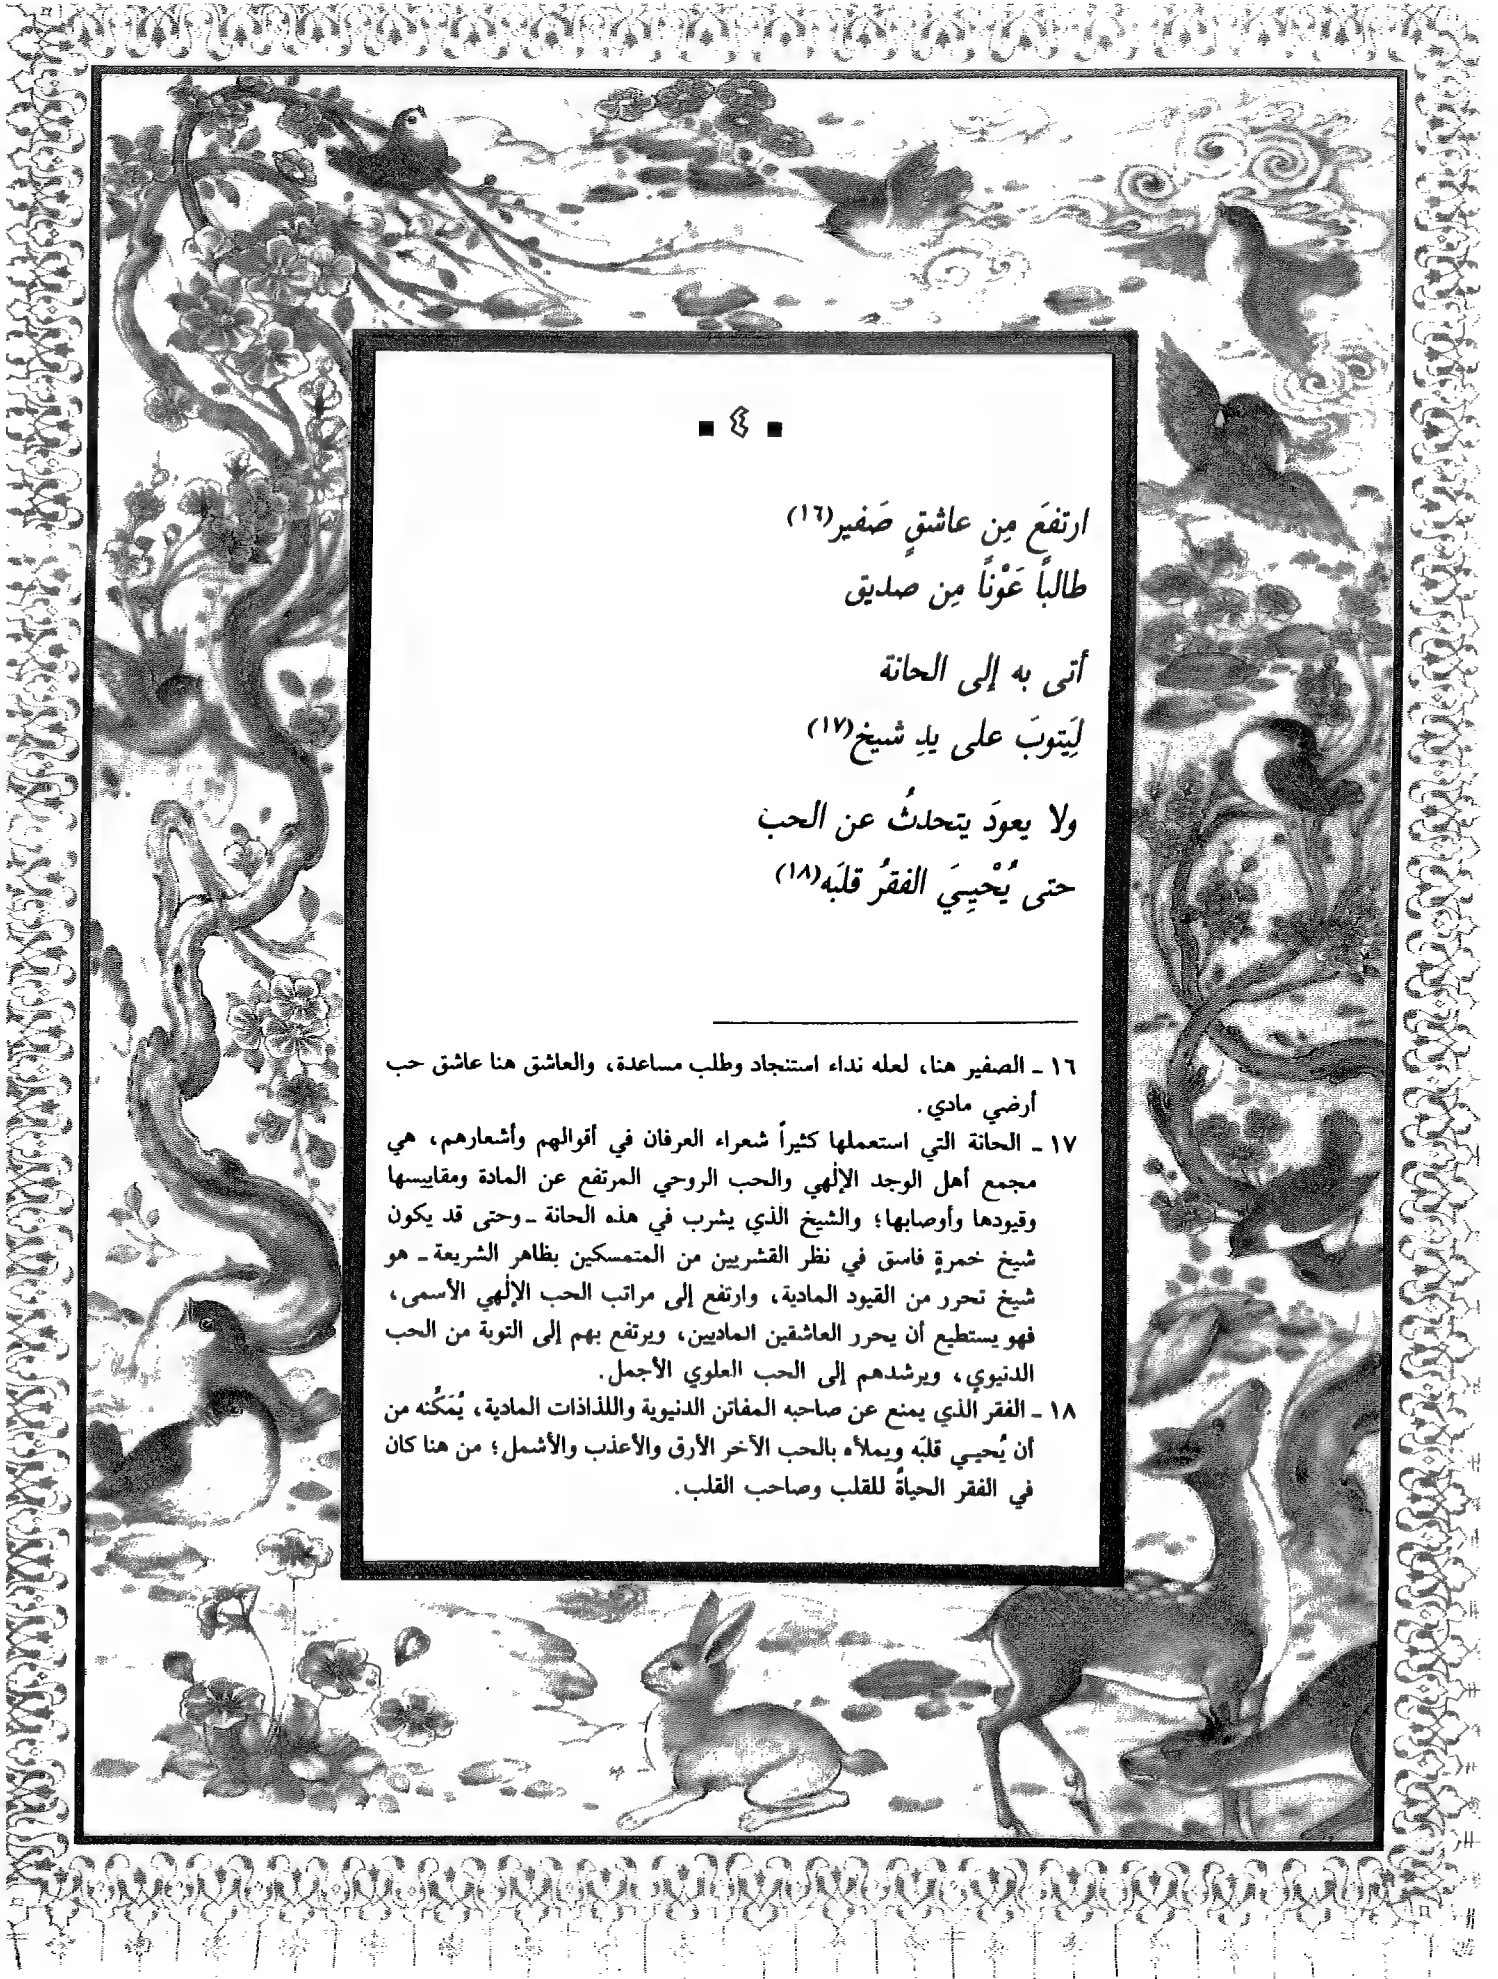 ▪ ٤ ▪
ارتفعَ مِن عاشقٍ صَفير(١٦)
طالباً عَوْناً مِن صديق
أتى به إلى الحانة
لِيَتوبَ على يدِ شيخ(١٧)
ولا يعودَ يتحدثُ عن الحب
حتى يُحْيِيَ الفقرُ قلبَه(١٨)
١٦ ـ الصفير هنا، لعله نداء استنجاد وطلب مساعدة، والعاشق هنا عاشق حب
أرضي مادي.
١٧ ـ الحانة التي استعملها كثيراً شعراء العرفان في أقوالهم وأشعارهم، هي
مجمع أهل الوجد الإلٰهي والحب الروحي المرتفع عن المادة ومقاييسها
وقيودها وأوصابها؛ والشيخ الذي يشرب في هذه الحانة ـ وحتى قد يكون
شيخ خمرةٍ فاسق في نظر القشريين من المتمسكين بظاهر الشريعة ـ هو
شيخ تحرر من القيود المادية، وارتفع إلى مراتب الحب الإلٰهي الأسمى،
فهو يستطيع أن يحرر العاشقين الماديين، ويرتفع بهم إلى التوبة من الحب
الدنيوي، ويرشدهم إلى الحب العلوي الأجمل.
١٨ ـ الفقر الذي يمنع عن صاحبه المفاتن الدنيوية واللذاذات المادية، يُمَكِّنه من
أن يُحيي قلبَه ويملأه بالحب الآخر الأرق والأعذب والأشمل؛ من هنا كان
في الفقر الحياةُ للقلب وصاحب القلب.